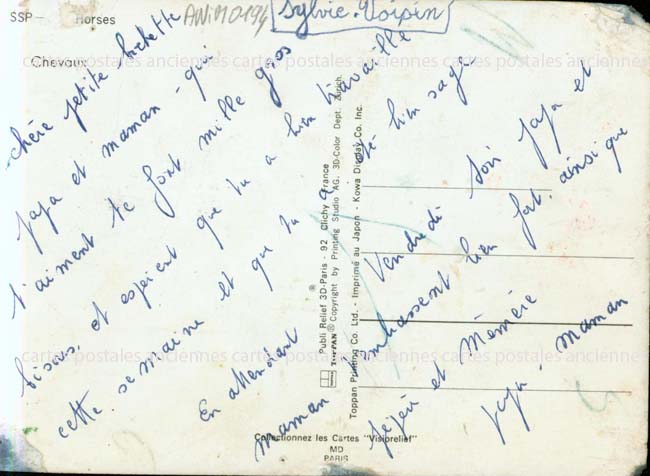 SSP- Horses
ANIM0194
Sylvie Voisin
Chevaux
cartes postales anciennes cartes postales anciennes cartes postales anciennes
chère petite
papa et maman - qui
t'aiment te font mille gros
bisous, et espèrent que tu a bien travaillé
cette semaine et que tu a été bien sage.
En attendant Vendredi soir papa et
maman t'embrassent bien fort, ainsi que
pépère et Mémère
papa - maman
Publi Relief 3D-Paris - 92 Clichy France
TOPPAN ® Copyright by Printing Studio AG. 3D-Color Dept. Zürich.
Toppan Printing Co. Ltd. - Imprimé au Japon - Kowa Display Co. Inc.
cartes postales anciennes cartes postales anciennes cartes postales anciennes
Collectionnez les Cartes "Visiorelief"
MD
PARIS